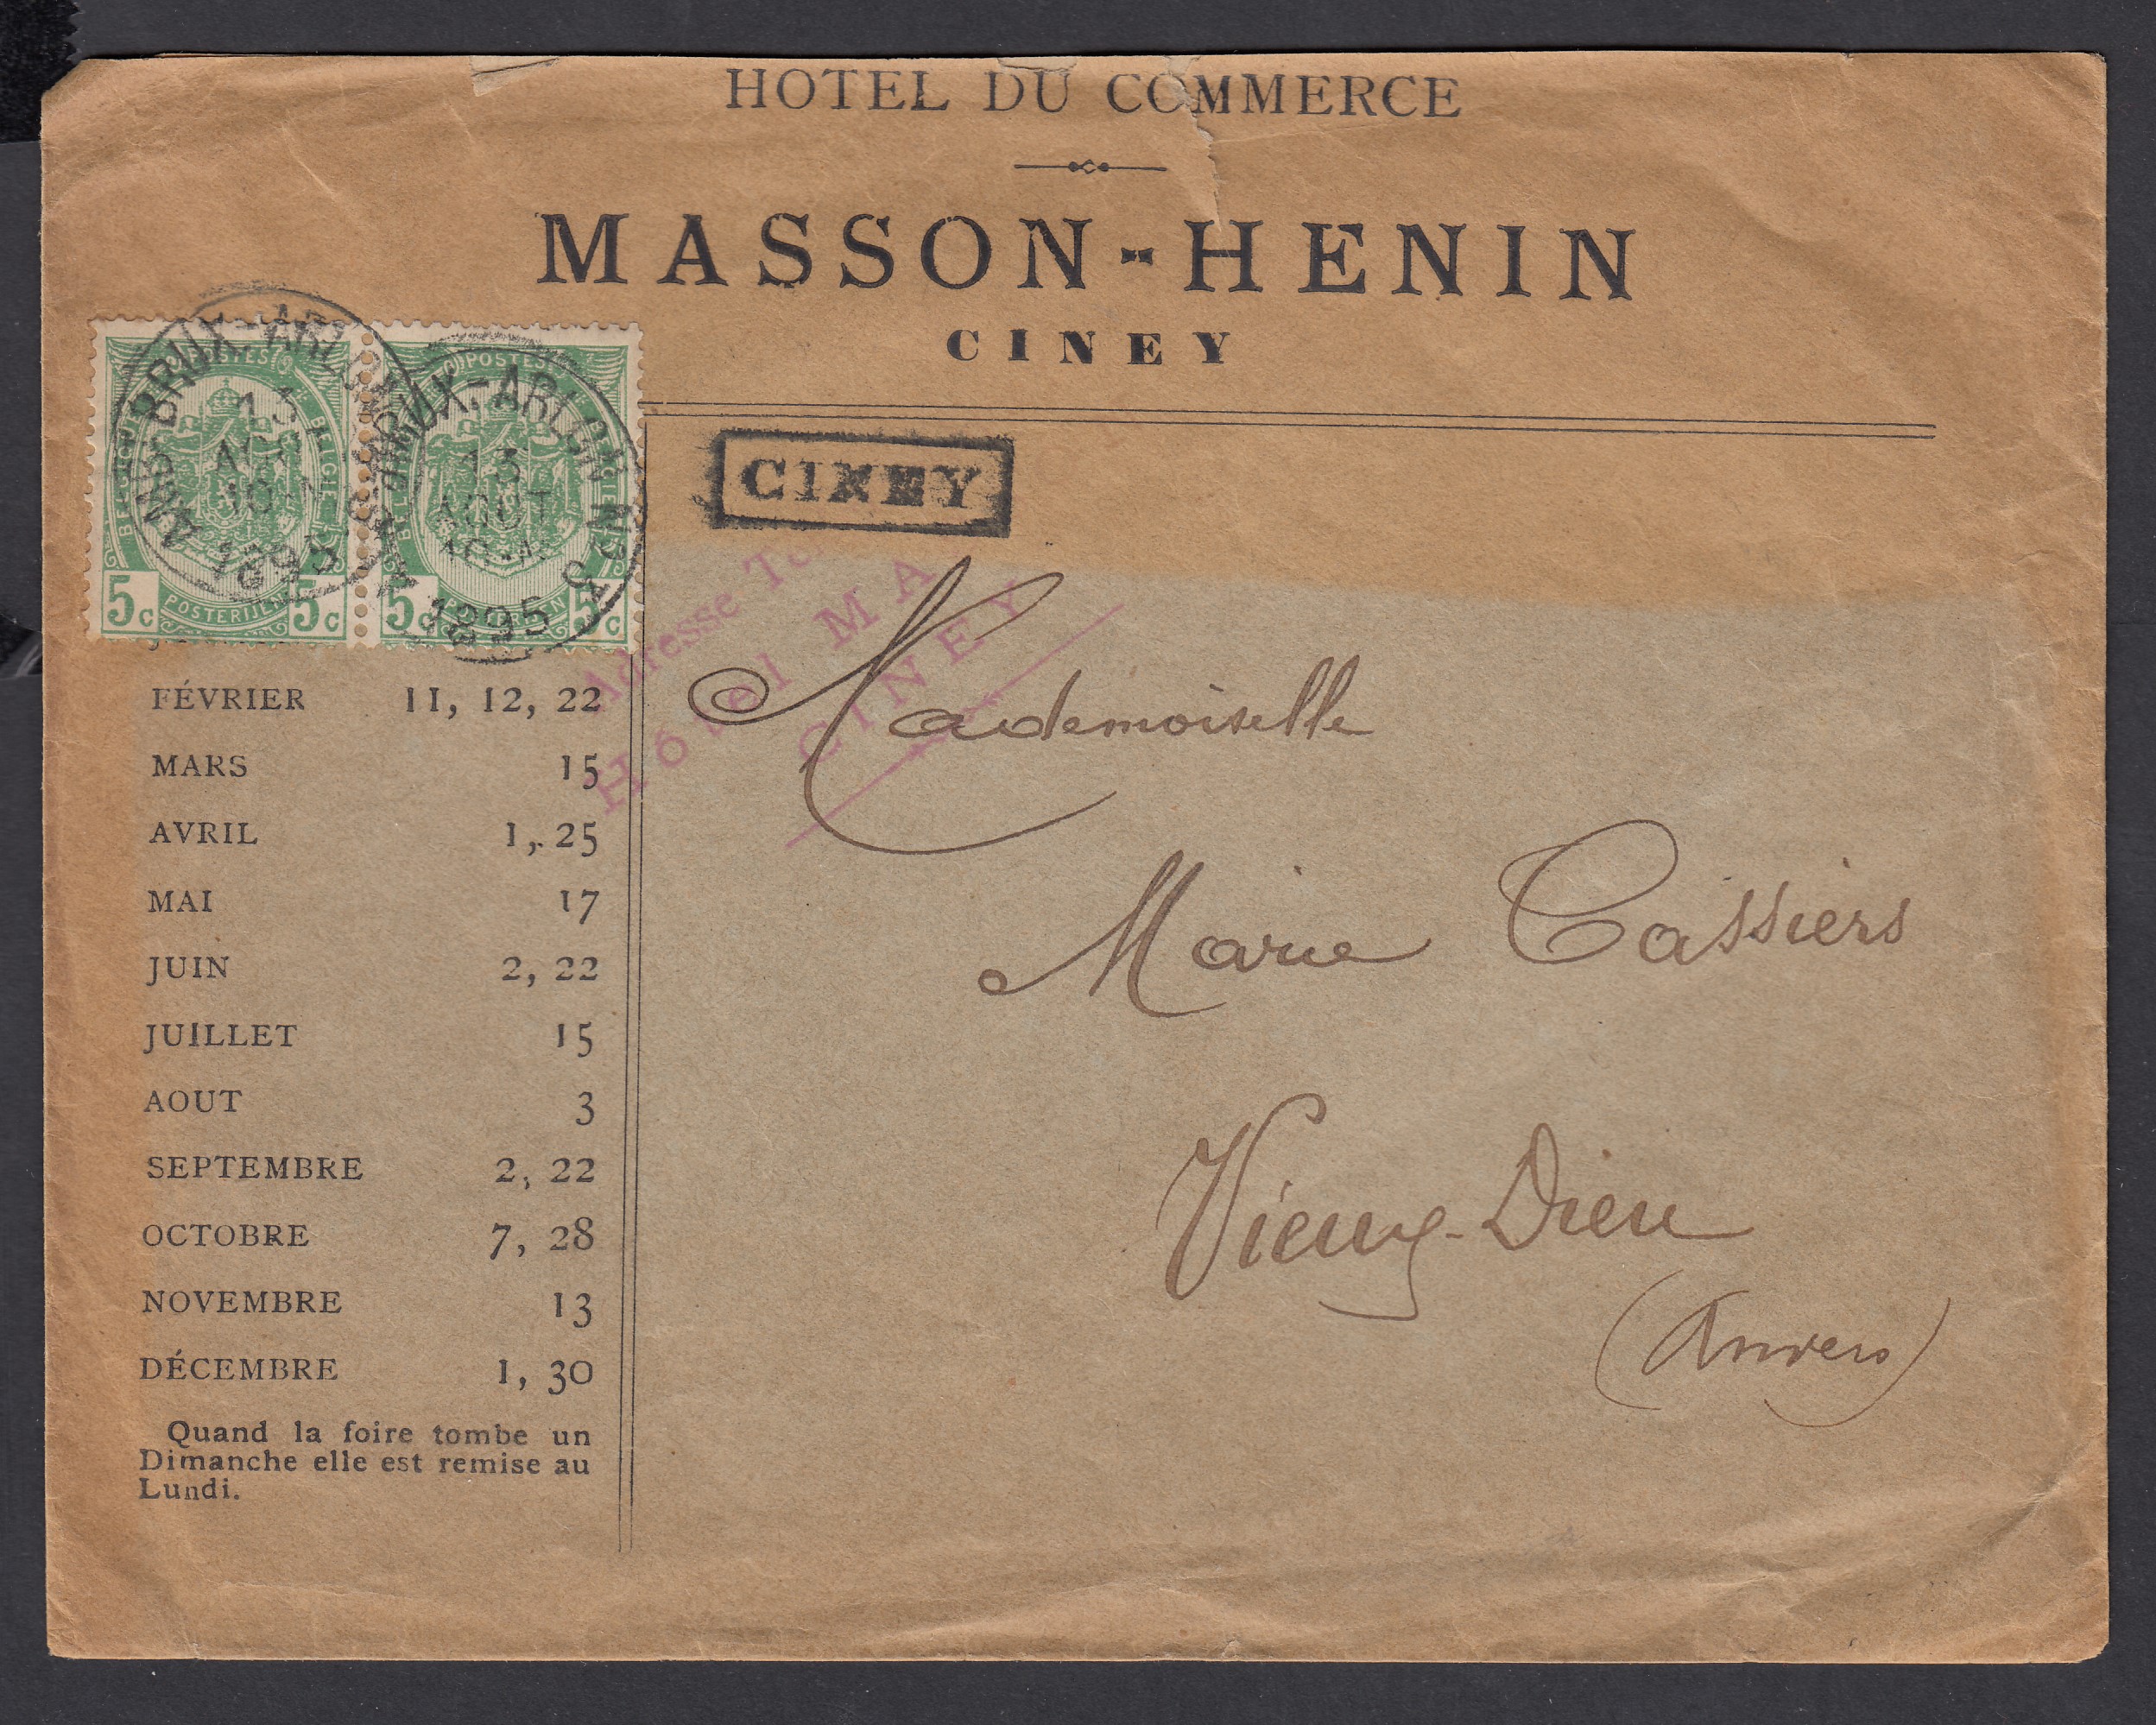 HOTEL DU COMMERCE
MASSON-HENIN
CINEY
POSTES
5c POSTERIJEN 5c
POSTES
5c POSTERIJEN 5c
AMB BRUX.-ARLON
13
AOUT
10-M
1895
BRUX.-ARLON
13
AOUT
10-M
1895
CINEY
Adresse
Hôtel MA
CINEY
FÉVRIER 11, 12, 22
MARS 15
AVRIL 1, 25
MAI 17
JUIN 2, 22
JUILLET 15
AOUT 3
SEPTEMBRE 2, 22
OCTOBRE 7, 28
NOVEMBRE 13
DÉCEMBRE 1, 30
Quand la foire tombe un
Dimanche elle est remise au
Lundi.
Mademoiselle
Marie Cassiers
Vieux-Dieu
(Anvers)